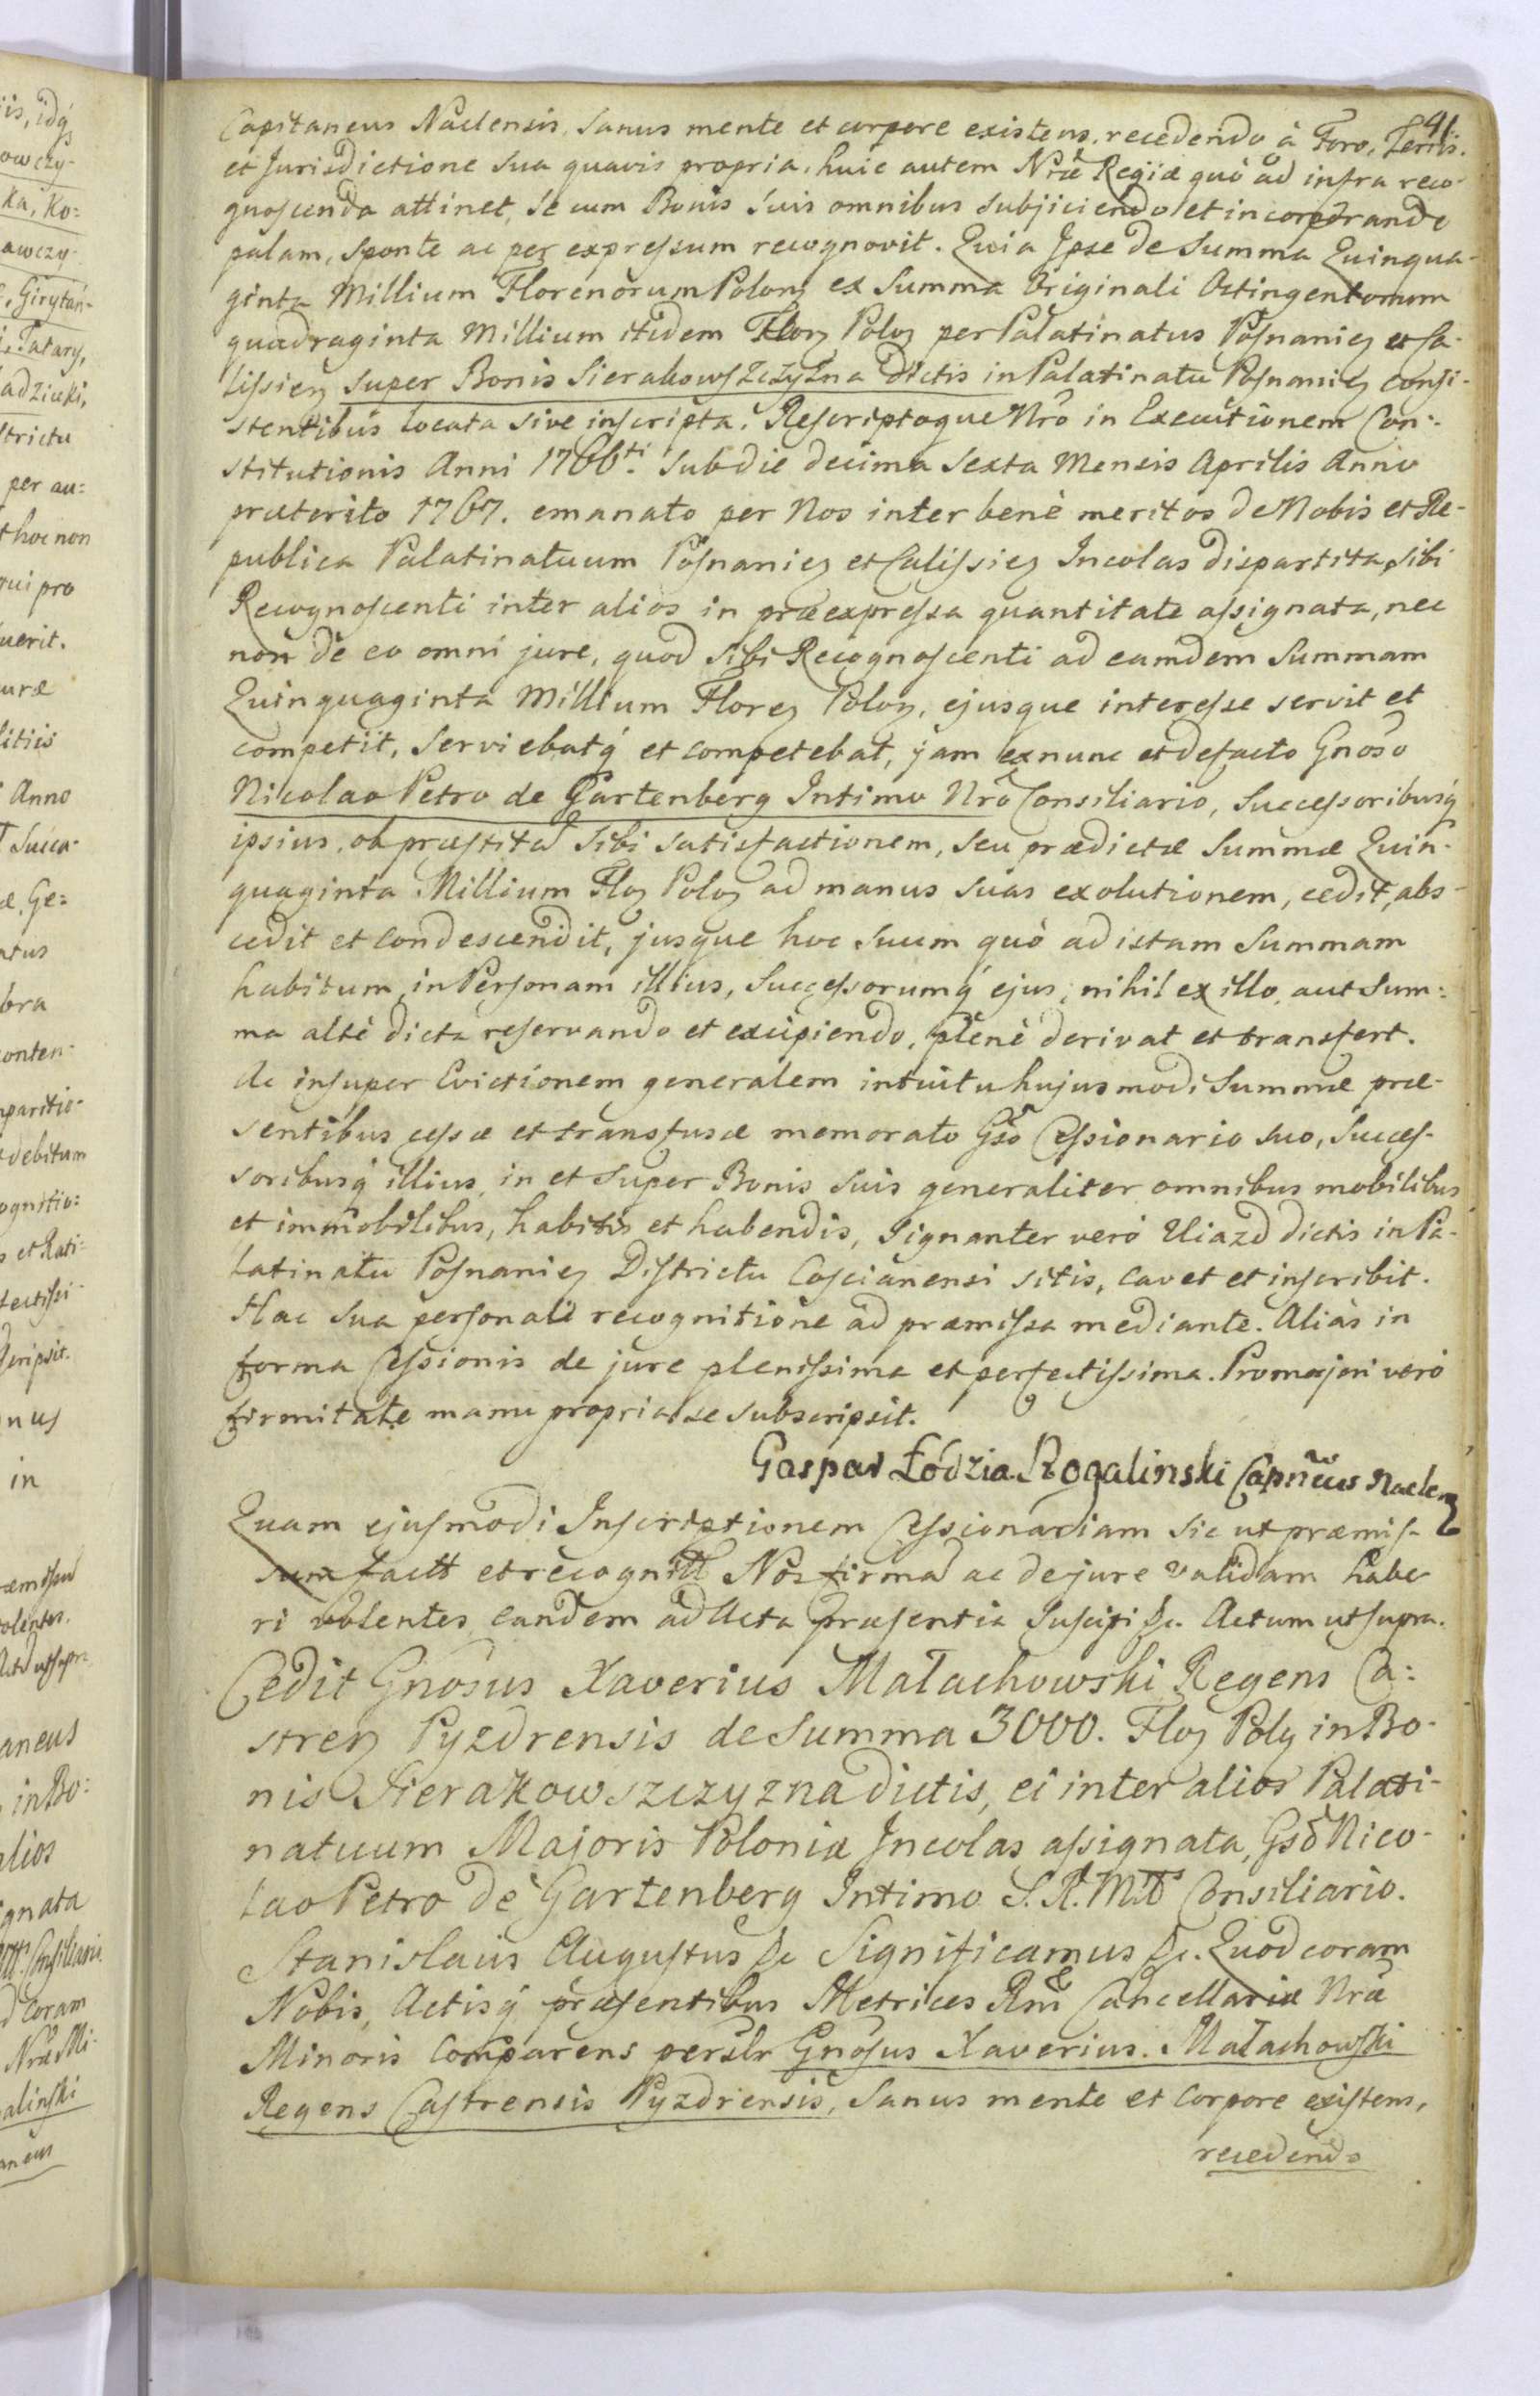 41.
Capitaneus Naclensis, Sanus mente et corpore existens, recedendo à Foro, Terris.
et Jurisdictione sua quavis propria, huic autem Nrae Regiae quò ad infra reco-
gnoscenda attinet, se cum Bonis suis omnibus subjiciendo et incorporando
palam, sponte ac per expressum recognovit. Quia Ipse de Summa Quinqua-
ginta Millium Florenorum Polon ex Summa Originali Octingentorum
quadraginta Millium itidem Flor Polo per Palatinatus Posnanien et Ca-
lissien super Bonis Sierakowszczyzna dictis in Palatinatu Posnanien consi-
stentibus locata sive inscripta. Rescriptoque Nro in Executionem Con:
stitutionis Anni 1766ti sub die decima sexta Mensis Aprilis Anno
praeterito 1767. emanato per Nos inter benè meritos de Nobis et Re-
publica Palatinatuum Posnanien et Calissien Incolas dispartita, sibi
Recognoscenti inter alios in praeexpressa quantitate assignata, nec
non de eo omni jure, quod sibi Recognoscenti ad eamdem Summam
Quinquaginta Millium Floren Polon, ejusque interesse servit et
competit, serviebatq́ et competebat, jam ex nunc et de facto Gnoso
Nicolao Petro de Gartenberg Intimo Nro Consiliario, Successoribusq́
ipsius, ob praestitã sibi satisfactionem, seu praedictae Summae Quin-
quaginta Millium Flo Polo ad manus suas exolutionem, cedit, abs-
cedit et condescendit, jusque hoc suum quò ad istam Summam
habitum, in Personam illius, Successorumq́ ejus, nihil ex illo, aut Sum:
ma altè dicta reservando et excipiendo, plenè derivat et transfert.
Ac insuper Evictionem generalem intuitu hujusmodi Summae prae-
sentibus cessae et transfusae memorato Gso Cessionario suo, Succes-
soribusq́ illius, in et super Bonis suis generaliter omnibus mobilibus
et immobilibus, habitis et habendis, signanter verò Uiazd dictis in Pa-
latinatu Posnanien Districtu Coscianensi sitis, cavet et inscribit.
Hac sua personali recognitione ad praemissa mediante. Aliàs in
forma Cessionis de jure plenissima et perfectissima. Pro majori verò
firmitate manu propria se subscripsit.
Gaspar Łódzia Rogalinski Capneus Naclen
Quam ejusmodi Inscriptionem Cessionariam sic ut praemis-
sum factt et recognitt Nos firmã ac de jure validam habe
ri volentes, eandem ad Acta praesentia suscipi &c. Actum ut supra.
Cedit Gnosus Xaverius Małachowski Regens Ca:
stren Pyzdrensis de Summa 3000. Flo Poln in Bo-
nis Sierakowszczyzna dictis, ei inter alios Palati-
natuum Majoris Poloniae Incolas assignata, Gso Nico-
lao Petro de Gartenberg Intimo S. R. Mtt Consiliario.
Stanislaus Augustus &c Significamus &c. Quod coram
Nobis, Actisq́ praesentibus Metrices Rni Cancellariae Nrae
Minoris Comparens persolr Gnosus Xaverius Małachowski
Regens Castrensis Pyzdrensis, Sanus mente et Corpore existens,
recedendo